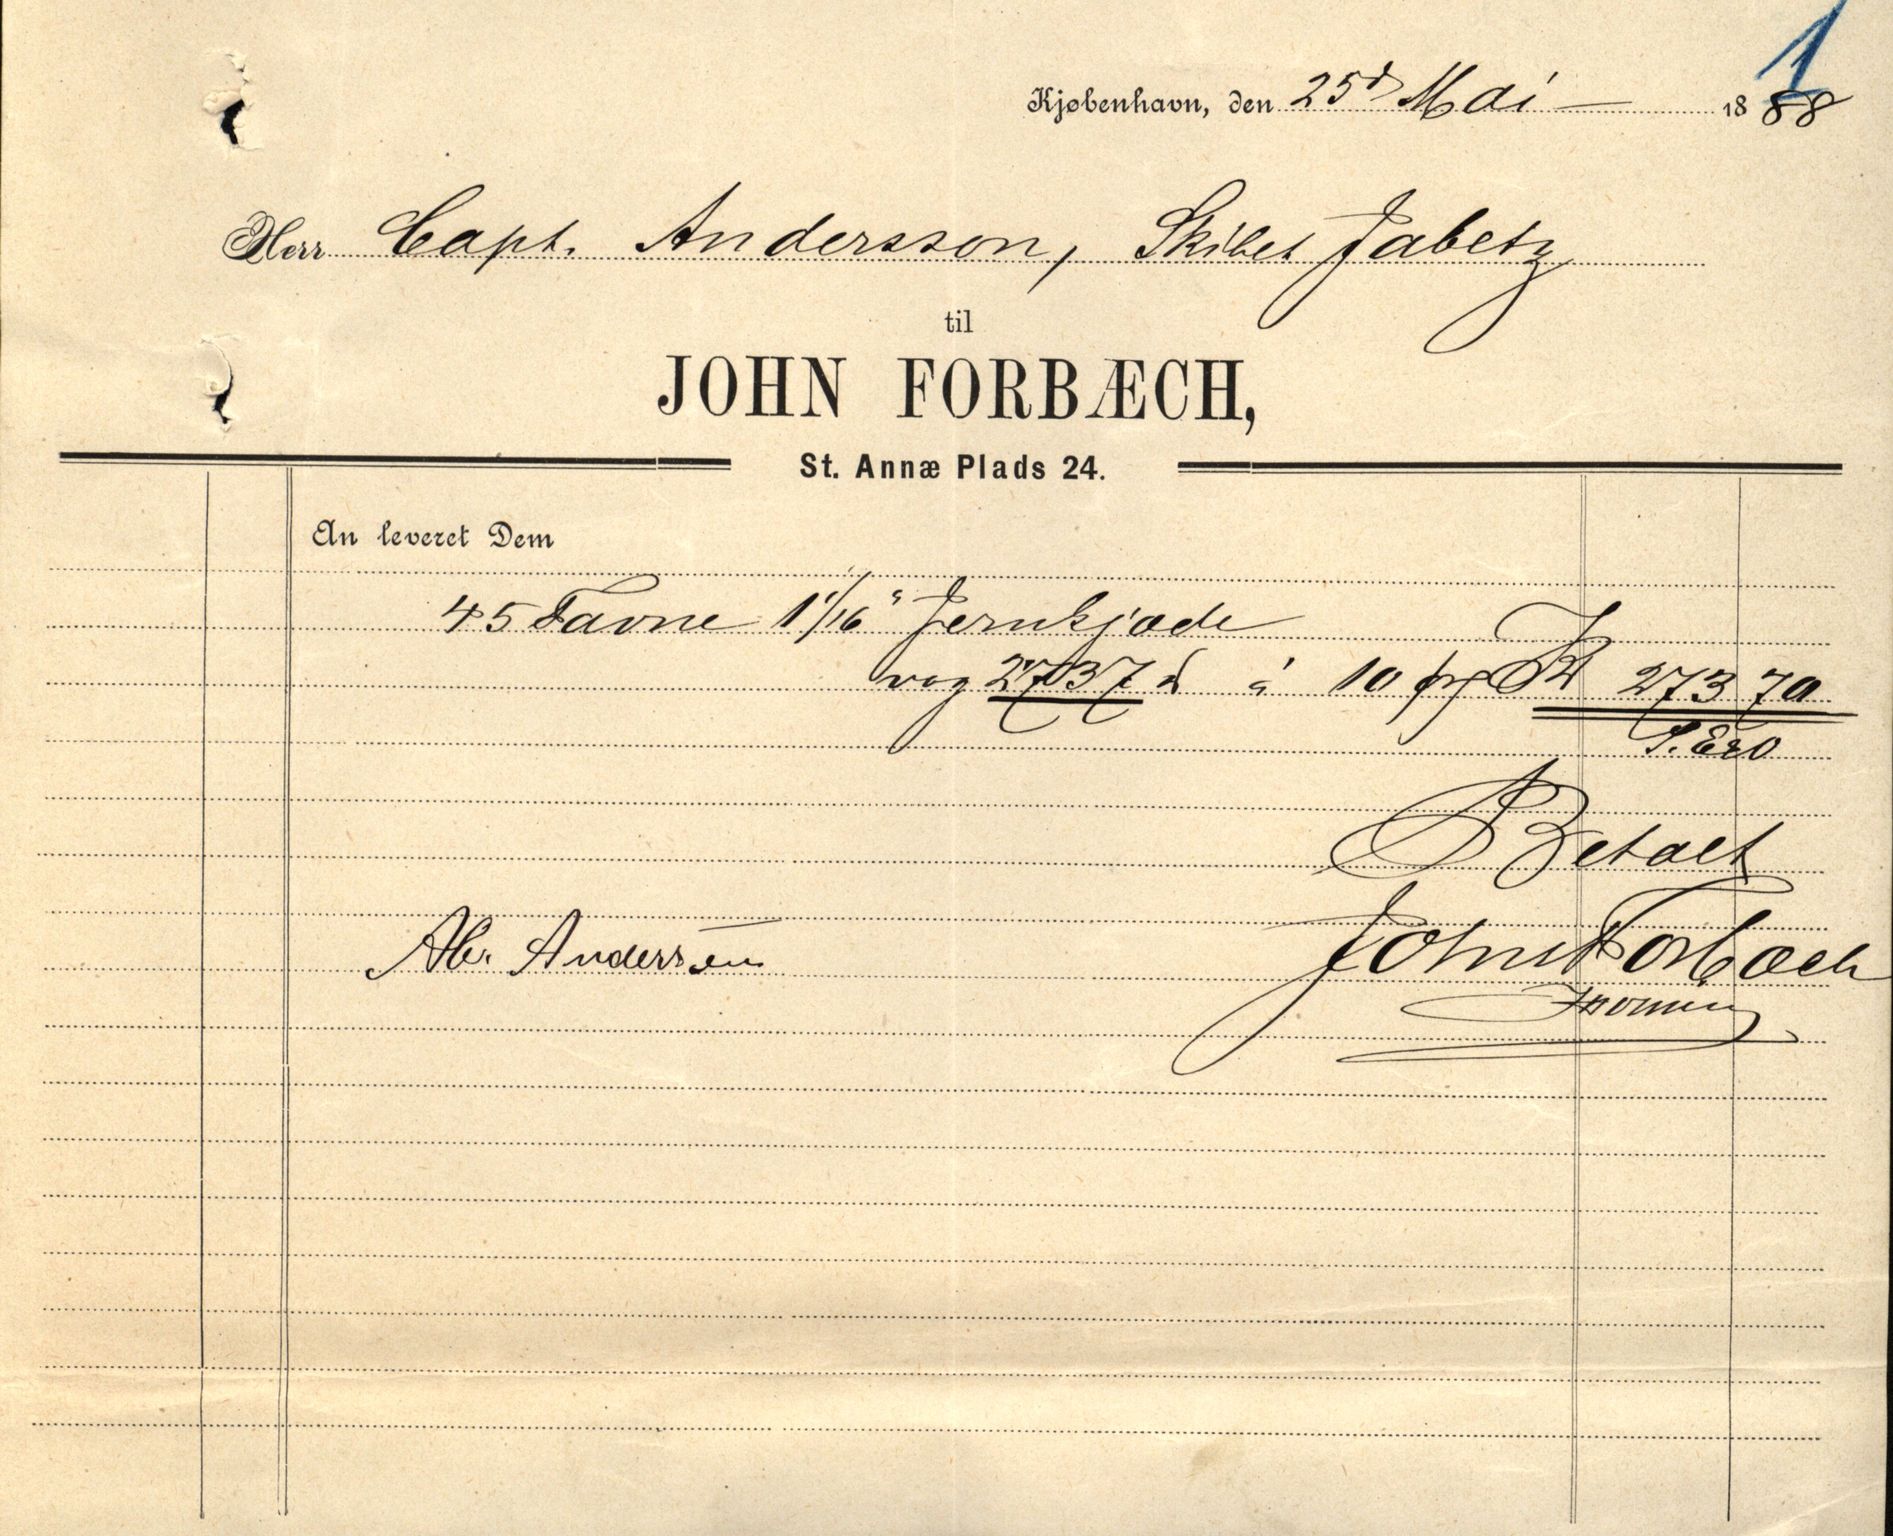 1
Kjøbenhavn, den 25d Mai 1888
Herr Capt. Andersson, Skibet Jabetz
til
JOHN FORBÆCH,
St. Annæ Plads 24.
An leveret Dem
45 Favne 1 1/16" Jernkjæde
vog 2737 à 10 Kr 273 70
S. E. & O
Betalt
John Forbæch
Abr. Andersson